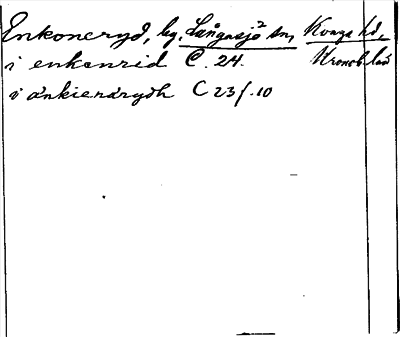 Enkoneryd, by, Långasjö² sn, Konga hd,
i enkanrid C. 24. Kronob län
i ankienarydh C 23 f. 10